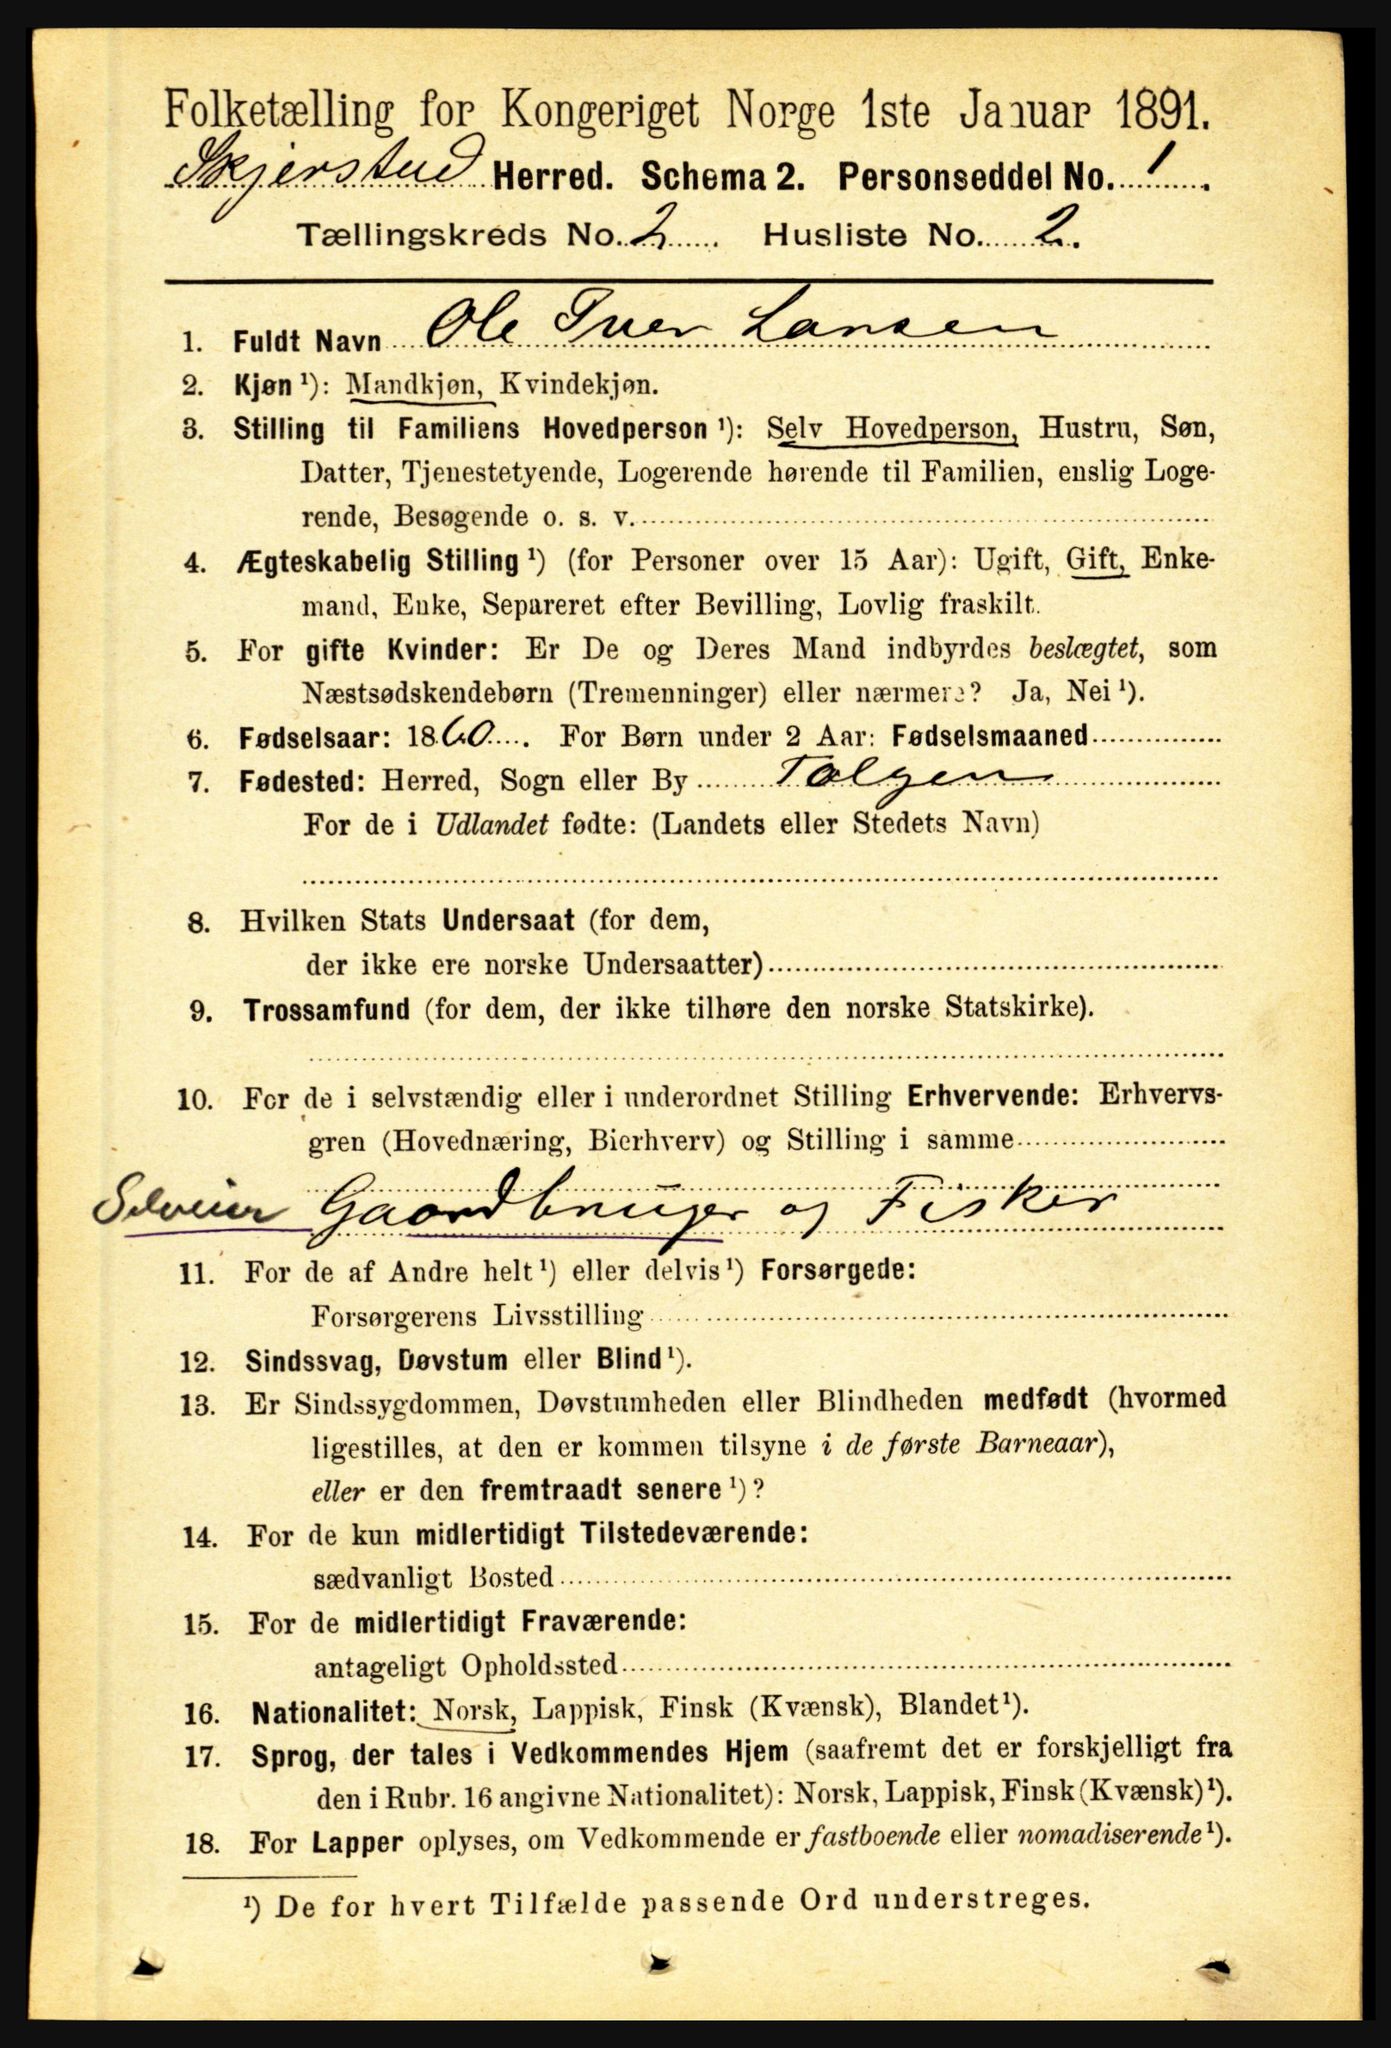 Folketælling for Kongeriget Norge 1ste Januar 1891.
Skjerstad Herred. Schema 2. Personseddel No. 1.
Tællingskreds No. 2. Husliste No. 2.
1. Fuldt Navn Ole Iver Larsen
2. Kjøn ¹): Mandkjøn, Kvindekjøn.
3. Stilling til Familiens Hovedperson ¹): Selv Hovedperson, Hustru, Søn,
Datter, Tjenestetyende, Logerende hørende til Familien, enslig Loge-
rende, Besøgende o. s. v.
4. Ægteskabelig Stilling ¹) (for Personer over 15 Aar): Ugift, Gift, Enke-
mand, Enke, Separeret efter Bevilling, Lovlig fraskilt.
5. For gifte Kvinder: Er De og Deres Mand indbyrdes beslægtet, som
Næstsødskendebørn (Tremenninger) eller nærmere? Ja, Nei ¹).
6. Fødselsaar: 1860. For Børn under 2 Aar: Fødselsmaaned
7. Fødested: Herred, Sogn eller By Tolgen
For de i Udlandet fødte: (Landets eller Stedets Navn)
8. Hvilken Stats Undersaat (for dem,
der ikke ere norske Undersaatter)
9. Trossamfund (for dem, der ikke tilhøre den norske Statskirke).
10. For de i selvstændig eller i underordnet Stilling Erhvervende: Erhvervs-
gren (Hovednæring, Bierhverv) og Stilling i samme
Selveier Gaardbruger og Fisker
11. For de af Andre helt ¹) eller delvis ¹) Forsørgede:
Forsørgerens Livsstilling
12. Sindssvag, Døvstum eller Blind ¹).
13. Er Sindssygdommen, Døvstumheden eller Blindheden medfødt (hvormed
ligestilles, at den er kommen tilsyne i de første Barneaar),
eller er den fremtraadt senere ¹)?
14. For de kun midlertidigt Tilstedeværende:
sædvanligt Bosted
15. For de midlertidigt Fraværende:
antageligt Opholdssted
16. Nationalitet: Norsk, Lappisk, Finsk (Kvænsk), Blandet ¹).
17. Sprog, der tales i Vedkommendes Hjem (saafremt det er forskjelligt fra
den i Rubr. 16 angivne Nationalitet): Norsk, Lappisk, Finsk (Kvænsk) ¹).
18. For Lapper oplyses, om Vedkommende er fastboende eller nomadiserende ¹).
¹) De for hvert Tilfælde passende Ord understreges.